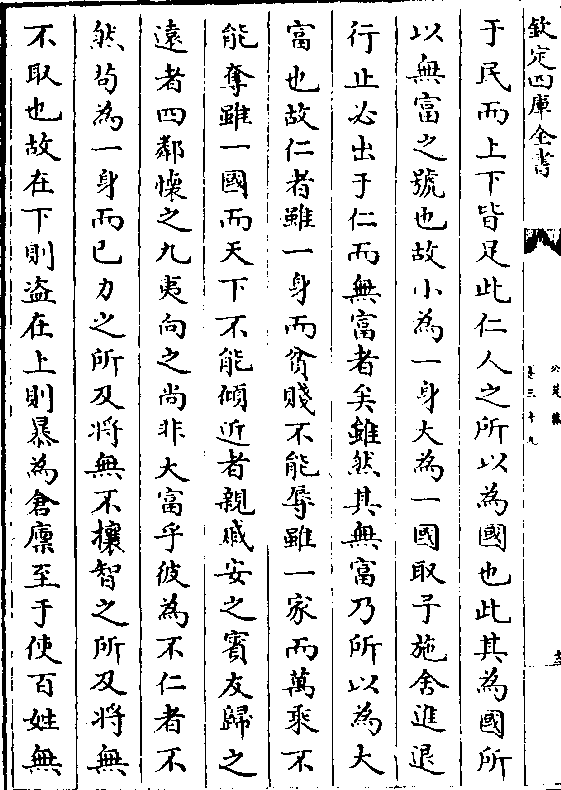 欽定四庫全書
于民而上下皆足此仁人之所以為國也此其為國所
以無富之號也故小為一身大為一國取予施舍進退
行止必出于仁而無富者矣雖然其無富乃所以為大
富也故仁者雖一身而貧賤不能辱雖一家而萬乘不
能奪雖一國而天下不能傾近者親戚安之賓友歸之
遠者四鄰懷之九夷向之尚非大富乎彼為不仁者不
然茍為一身而已力之所及將無不攘智之所及將無
不取也故在下則盗在上則暴為倉廩至于使百姓無